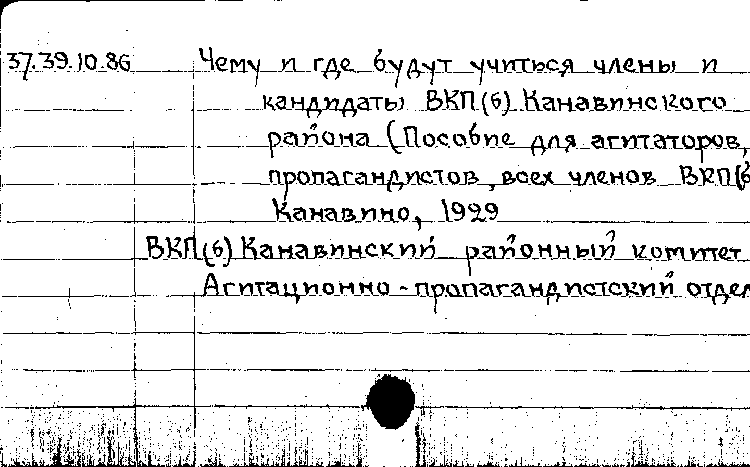 37.39.10.86 Чему и где будут учиться члены и
кандидаты ВКП(б) Канавинского
района (Пособие для агитаторов,
пропагандистов, всех членов ВКП(б
Канавино, 1929
ВКП(б) Канавинский районный комитет
Агитационно-пропагандистский отдел